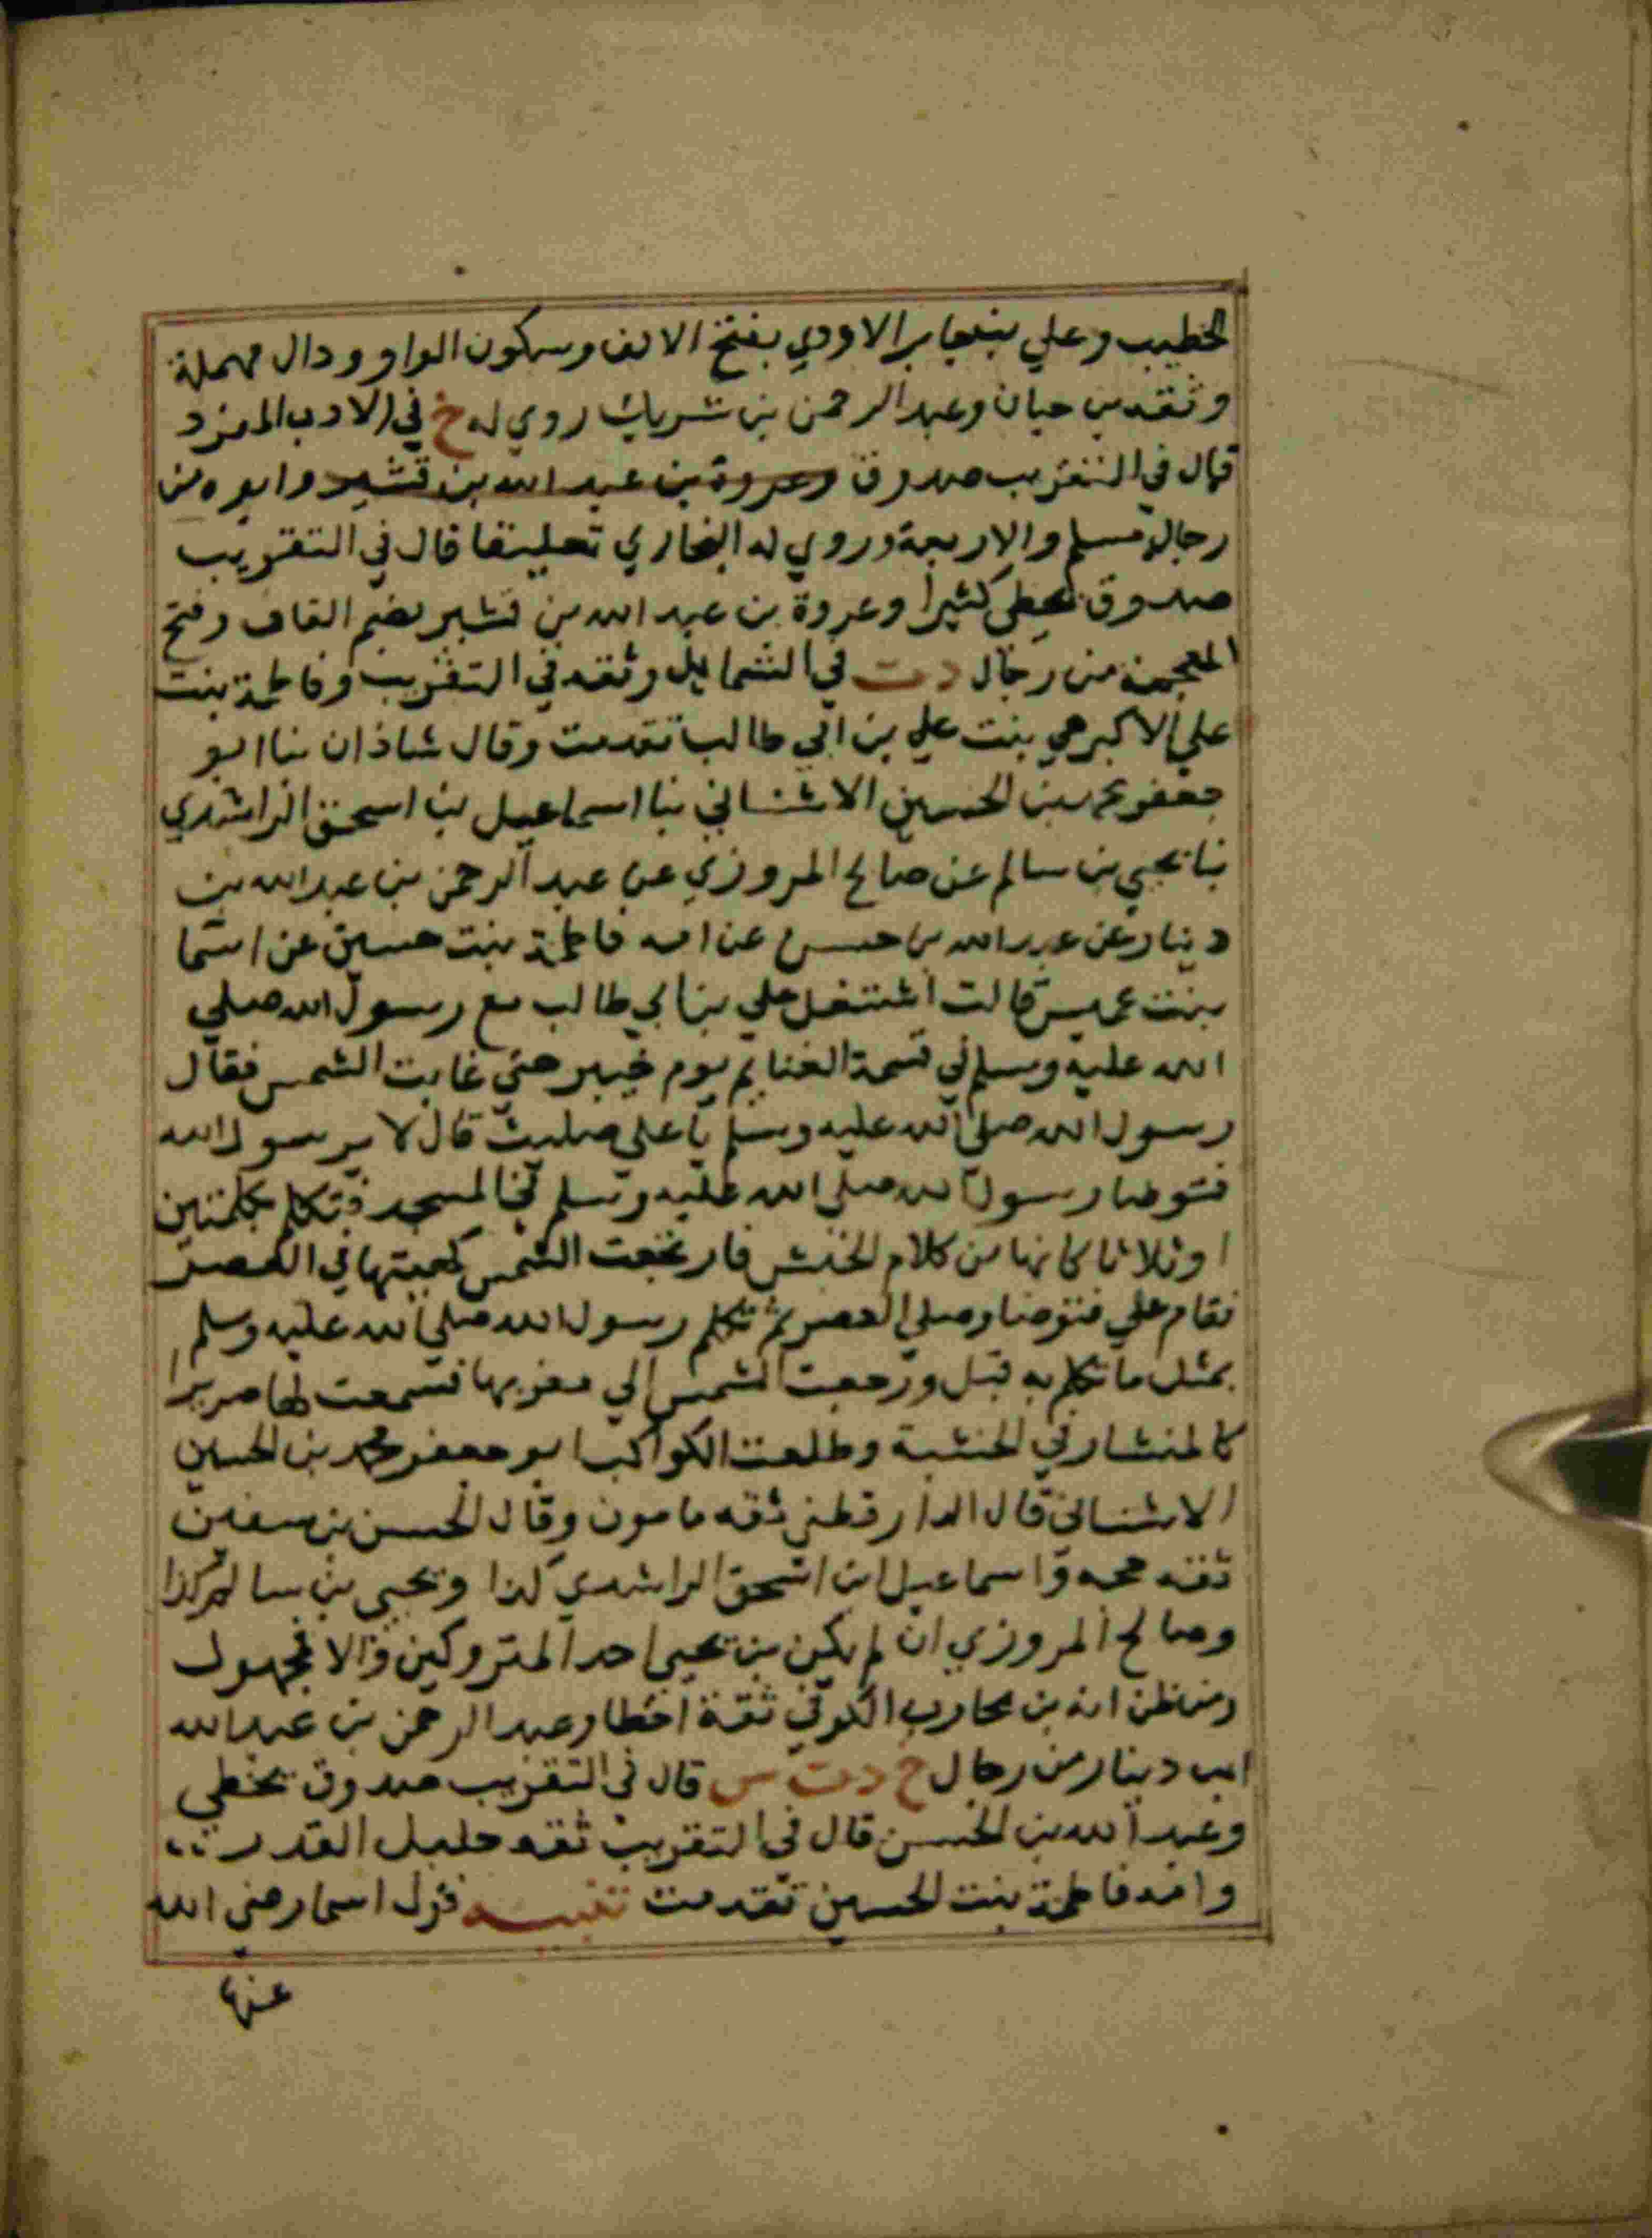 الخطيب وعلي بن جابر الاودي بفتح الالف وسكون الواو ودال مهملة
وثقه بن حبان وعبد الرحمن بن شريك روي له خ في الادب المفرد
قال في التقريب صدوق وعروة بن عبد الله بن قشير وابوه من
رجال مسلم والاربعة وروي له البخاري تعليقا قال في التقريب
صدوق يخطي كثيرا وعروة بن عبد الله بن قشير بضم القاف وفتح
المعجمة من رجال د ت في الشمايل وثقه في التقريب وفاطمة بنت
علي الاكبر هي بنت علي بن ابي طالب تقدمت وقال شاذان ثنا ابو
جعفر محمد بن الحسين الاشناني ثنا اسماعيل بن اسحق الراشدي
ثنا يحيي بن سالم عن صالح المروزي عن عبد الرحمن بن عبد الله بن
دينار عن عبد الله بن حسن عن امه فاطمة بنت حسين عن اسما
بنت عميس قالت اشتغل علي بن ابي طالب مع رسول الله صلي
الله عليه وسلم في قسمة الغنايم يوم خيبر حتي غابت الشمس فقال
رسول الله صلى الله عليه وسلم يا علي صليت قال لا يرسول الله
فتوضا رسول الله صلى الله عليه وسلم في المسجد فتكلم بكلمتين
او ثلاثا كانها من كلام الحبش فارتجعت الشمس كهيئتها في العصر
فقام علي فتوضا وصلي العصر ثم تكلم رسول الله صلي الله عليه وسلم
بمثل ما تكلم به قبل ورجعت الشمس الي مغربها فسمعت لها صريرا
كالمنشار في الخشبة وطلعت الكواكب ابو جعفر محمد بن الحسين
الاشناني قال الدارقطني ثقه مامون وقال الحسن بن سفين
ثقه حجه واسماعيل ابن اسحق الراشدي كذا ويحيي بن سالم كذا
وصالح المروزي ان لم يكن بن يحيي احد المتروكين والا فمجهول
ومن ظن انه بن محارب الكوفي ثقة اخطا وعبد الرحمن بن عبد الله
ابن دينار من رجال خ د ت س قال في التقريب صدوق يخطي
وعبد الله بن الحسن قال في التقريب ثقه جليل القدر
وامه فاطمة بنت الحسين تقدمت تنبيه قول اسما رضي الله
عنها